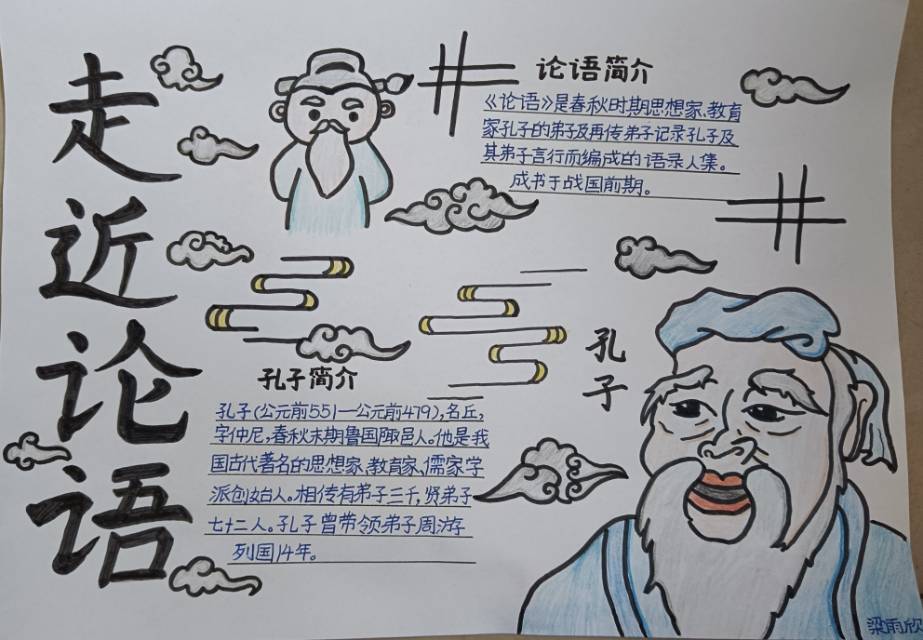 走近论语
论语简介
《论语》是春秋时期思想家、教育
家孔子的弟子及再传弟子记录孔子及
其弟子言行而编成的语录人集。
成书于战国前期。
孔子
孔子简介
孔子(公元前551—公元前479),名丘,
字仲尼,春秋末期鲁国陬邑人。他是我
国古代著名的思想家、教育家、儒家学
派创始人。相传有弟子三千,贤弟子
七十二人。孔子曾带领弟子周游
列国14年。
梁雨欣